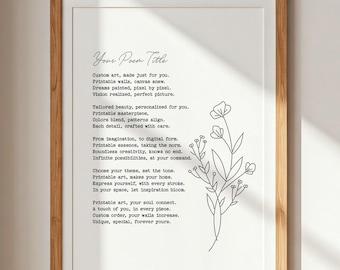 Your Poem Title
Custom art, made just for you.
Printable walls, canvas anew.
Dreams painted, pixel by pixel.
Vision realized, perfect picture.
Tailored beauty, personalized for you.
Printable masterpiece,
Colors blend, patterns align.
Each detail, crafted with care.
From imagination, to digital form.
Printable essence, taking the norm.
Boundless creativity, knows no end.
Infinite possibilities, at your command.
Choose your theme, set the tone.
Printable art, makes your home.
Express yourself, with every stroke.
In your space, let inspiration bloom.
Printable art, your soul connect.
A touch of you, in every piece.
Custom order, your walls increase.
Unique, special, forever yours.